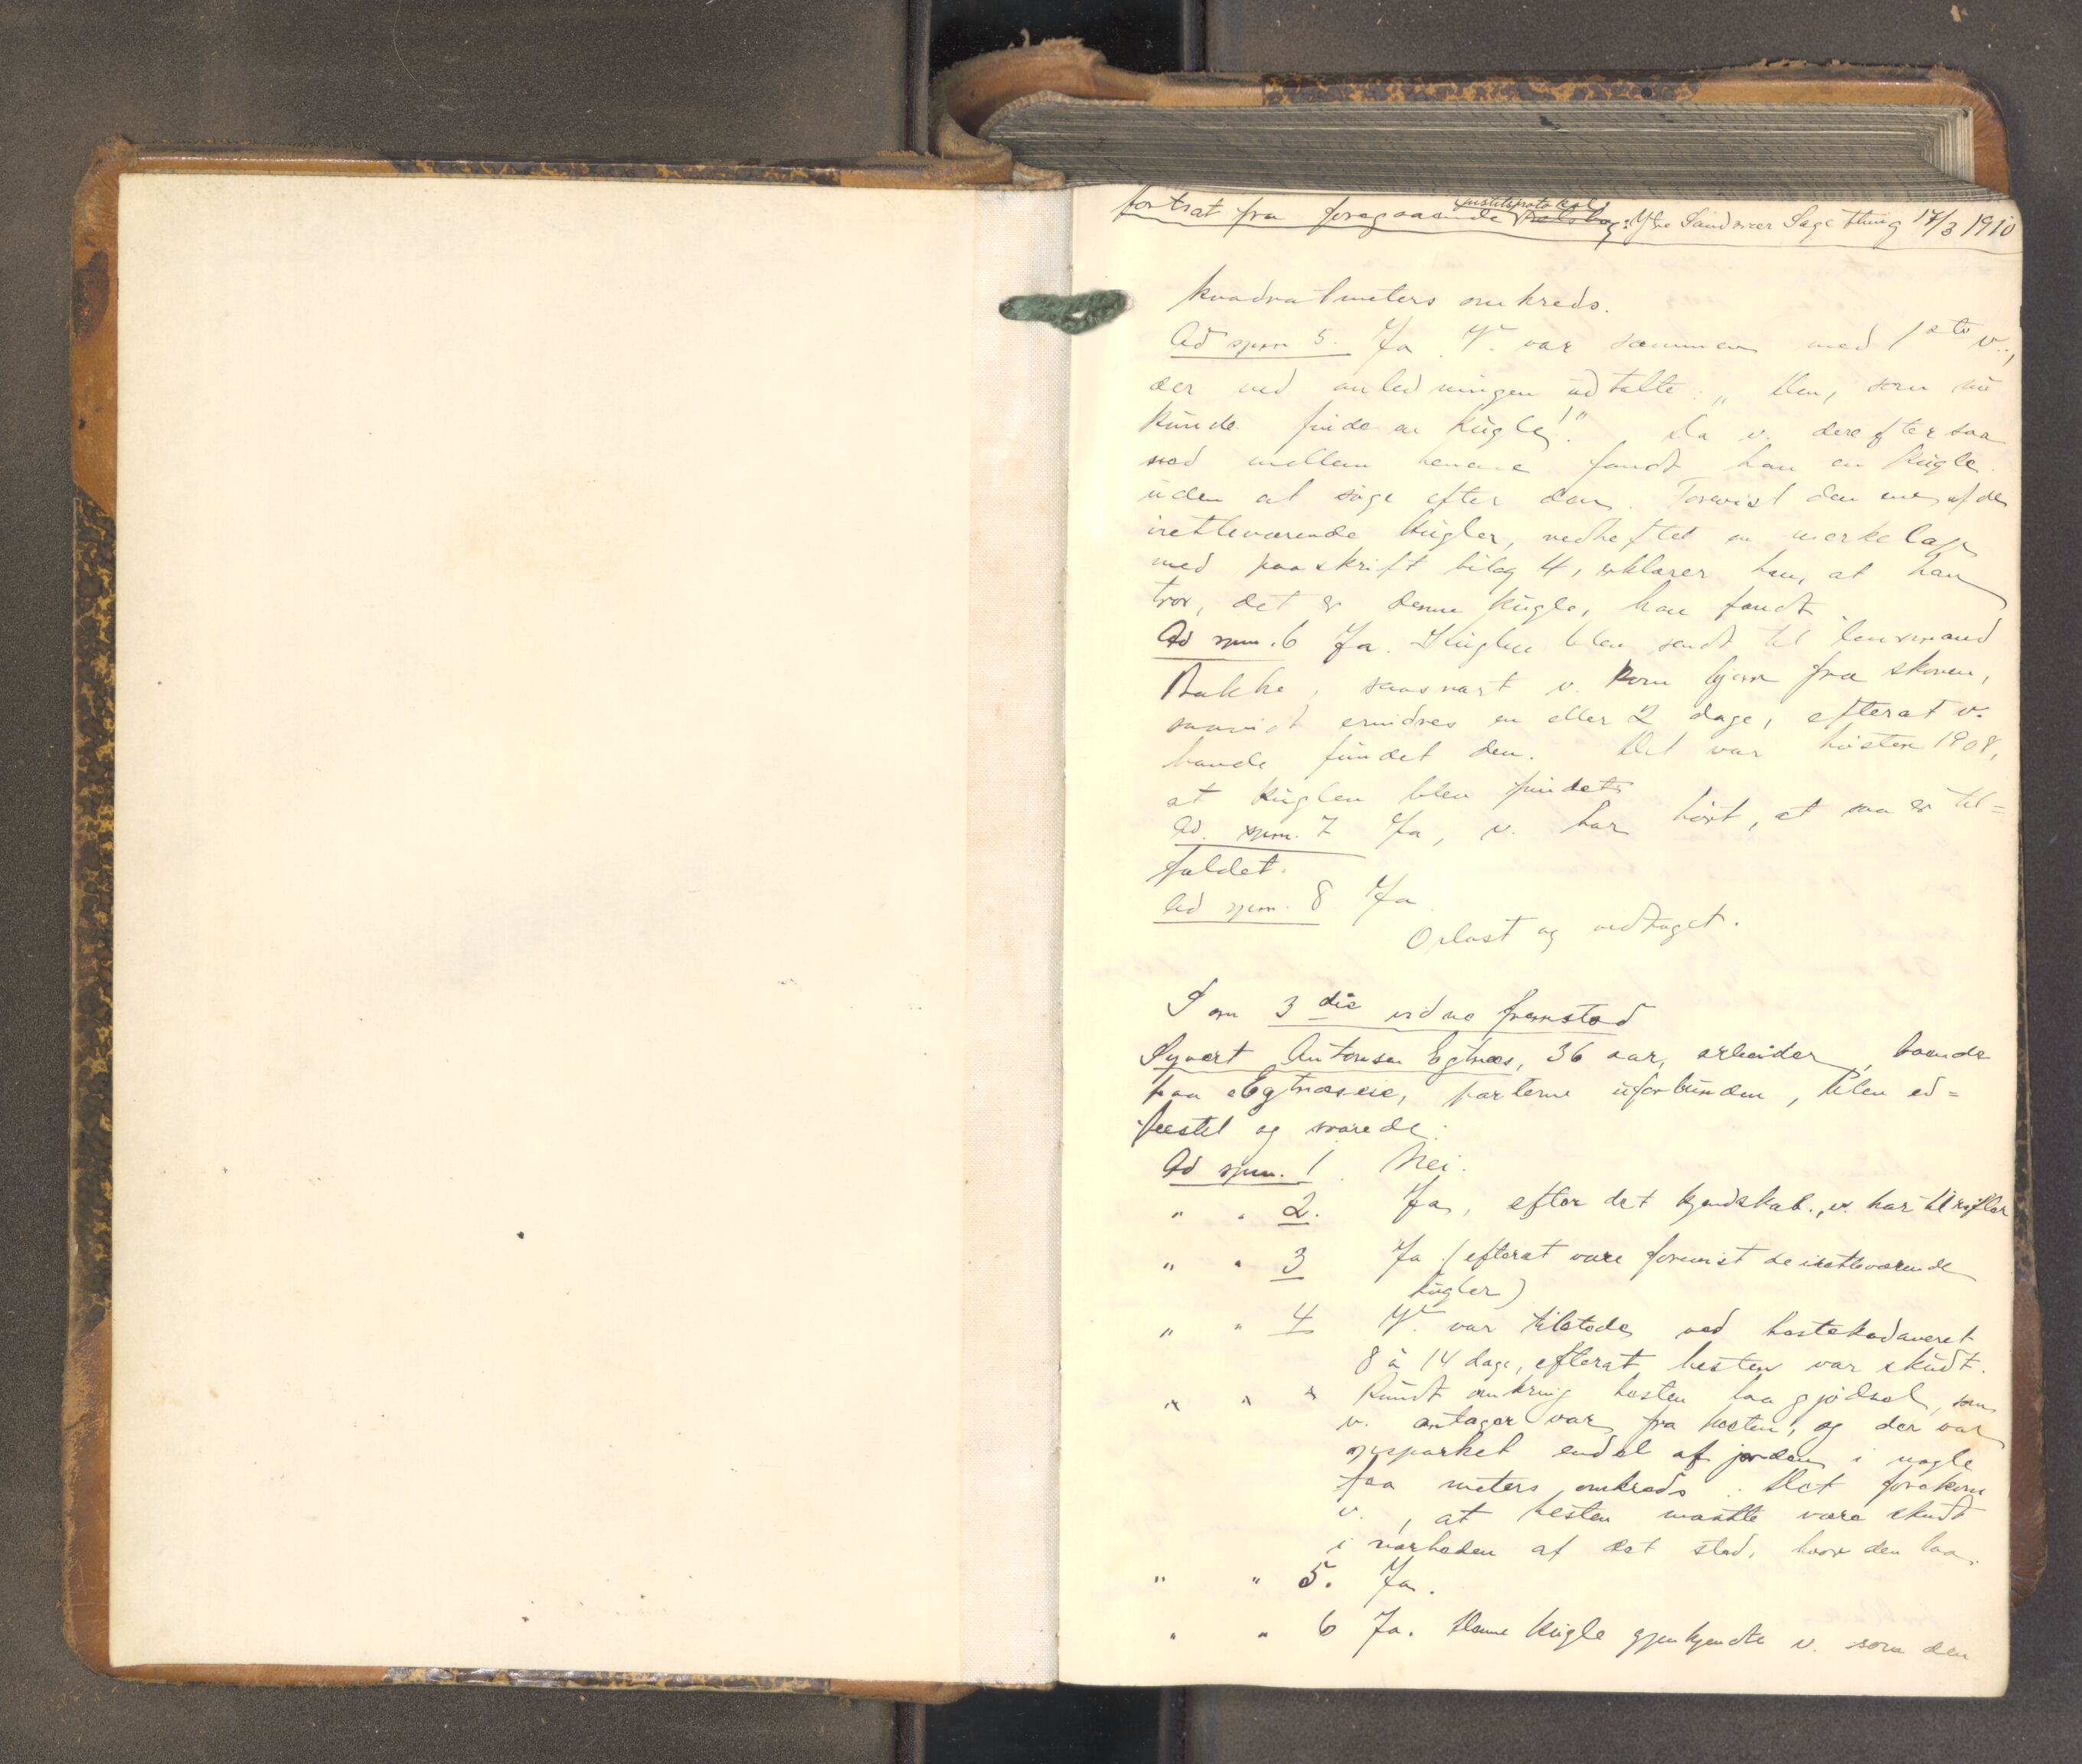 fortsat fra foregaaende justitsprotokol: Ytre Sandsvær Sage thing 17/3 1910
kvadratmeters omkreds.
Ad spm 5. Ja. V. var sammen med 1ste v.,
der ved anledningen udtalte: „Den, som nu
kunde finde en kugle!" Da v. derefter saa
ned mellem benene fandt han en kugle
uden at søge efter den. Forevist den ene af de
iretteværende kugler, vedheftet en merkelap
med paaskrift bilag 4, erklærer han, at han
tror, det er denne kugle, han fandt.
Ad spm. 6 Ja. Kuglen blev sendt til lensmand
Bakke, saasnart v. kom hjem fra skoven,
saavidt erindres en eller 2 dage, efterat v.
havde fundet den. Det var høsten 1908,
at kuglen blev fundet.
Ad. spm. 7 Ja, v. har hørt, at saa er til=
faldet.
Ad spm. 8 Ja
Oplæst og vedtaget.
Som 3die vidne fremstod
Syvert Antonsen Egtnæs, 36 aar, arbeider, boende
paa Egtnæseie, parterne uforbunden, blev ed=
fæstet og svarede:
Ad spm. 1. Nei.
„ „ 2. Ja, efter det kjendskab, v. har til rifler
„ „ 3 Ja (efterat være forevist de iretteværende
kugler)
„ „ 4 V. var tilstede ved hestekadaveret
8 à 14 dage, efterat hesten var skudt.
„ „ „ Rundt omkring hesten laa gjødsel, som
v. antager var fra hesten, og der var
opsparket endel af jorden i nogle
faa meters omkreds. Det forekom
v., at hesten maatte være skudt
i nærheden af det sted, hvor den laa.
„ „ 5. Ja.
„ „ 6 Ja. Denne kugle gjenkjendte v. som den